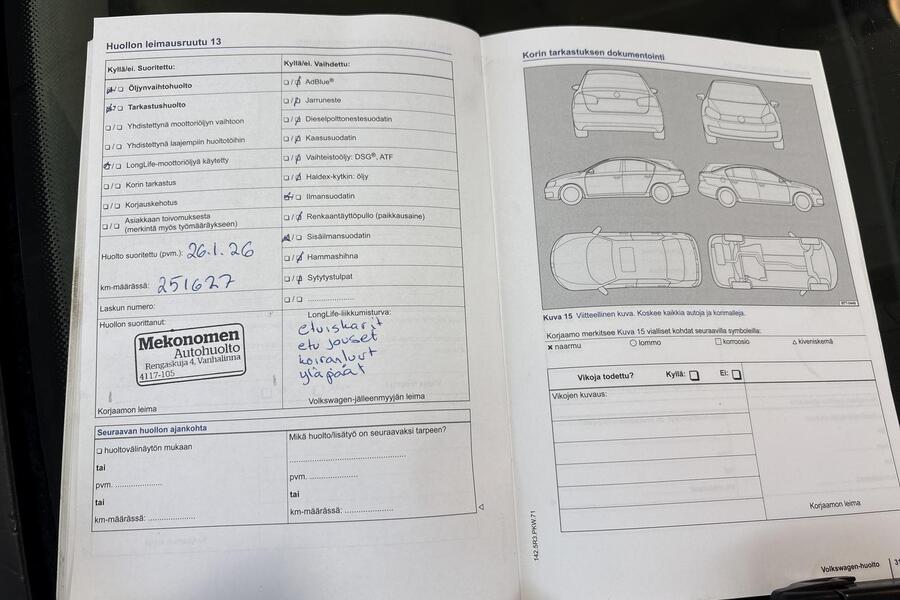 Huollon leimausruutu 13
Kyllä/ei. Suoritettu:
Öljynvaihtohuolto
Tarkastushuolto
Yhdistettynä moottoriöljyn vaihtoon
Yhdistettynä laajempiin huoltotöihin
LongLife-moottoriöljyä käytetty
Korin tarkastus
Korjauskehotus
Asiakkaan toivomuksesta
(merkintä myös työmääräykseen)
Huolto suoritettu (pvm.): 26.1.26
km-määrässä: 251627
Laskun numero:
Huollon suorittanut:
Mekonomen
Autohuolto
Rengaskuja 4, Vanhalinna
4117-105
Korjaamon leima
Kyllä/ei. Vaihdettu:
AdBlue®
Jarruneste
Dieselpolttonestesuodatin
Kaasusuodatin
Vaihteistoöljy: DSG®, ATF
Haldex-kytkin: öljy
Ilmansuodatin
Renkaantäyttöpullo (paikkausaine)
Sisäilmansuodatin
Hammashihna
Sytytystulpat
LongLife-liikkumisturva:
etuiskarit
etu jouset
koiranluut
yläpäät
Volkswagen-jälleenmyyjän leima
Seuraavan huollon ajankohta
huoltovälinäytön mukaan
tai
pvm.
tai
km-määrässä:
Mikä huolto/lisätyö on seuraavaksi tarpeen?
pvm.
tai
km-määrässä:
Korin tarkastuksen dokumentointi
Kuva 15 Viitteellinen kuva. Koskee kaikkia autoja ja korimalleja.
Korjaamo merkitsee Kuva 15 vialliset kohdat seuraavilla symboleilla:
naarmu lommo korroosio kiveniskemä
Vikoja todettu? Kyllä: Ei:
Vikojen kuvaus:
Korjaamon leima
142.5R3.PKW.71
Volkswagen-huolto